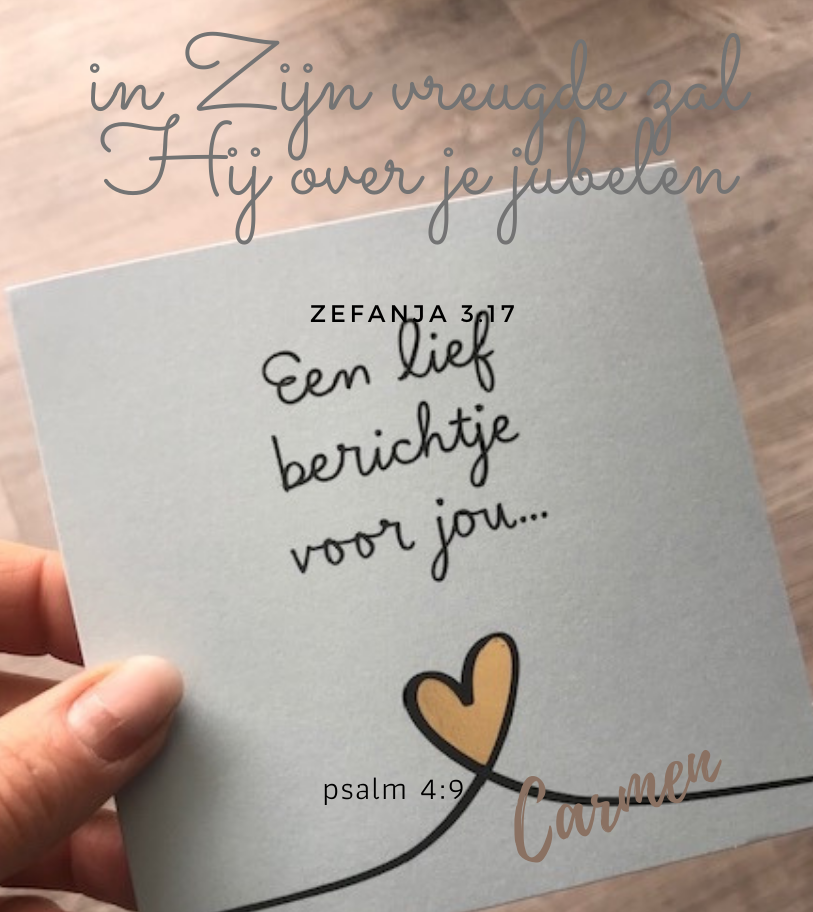 in Zijn vreugde zal
Hij over je jubelen
ZEFANJA 3:17
Een lief
berichtje
voor jou...
psalm 4:9
Carmen